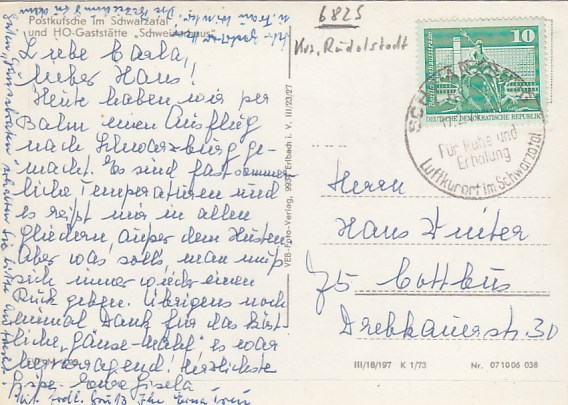 Postkutsche im Schwarzatal
und HO-Gaststätte „Schweizerhaus"
Liebe Carla,
lieber Hans!
Heute haben wir per
Bahn einen Ausflug
nach Schwarzburg ge-
macht. Es sind fast sommer-
liche Temperaturen und
es reißt mir in allen
Gliedern, außer dem Husten.
Aber was solls, man muß
sich immer wieder einen
Ruck geben. Übrigens noch
einmal Dank für das köst-
liche „Gänse-Mahl" es war
hervorragend! Herzlichste
Grüße Eure Gisela
VEB Foto-Verlag, 9935 Erlbach i. V. III/23/27
6825
Krs. Rudolstadt
10
DEUTSCHE DEMOKRATISCHE REPUBLIK
Für Ruhe und
Erholung
Luftkurort im Schwarzatal
Herrn
Hans Winter
75 Cottbus
Drebkauerstr. 30
III/18/197 K 1/73 Nr. 071006 038